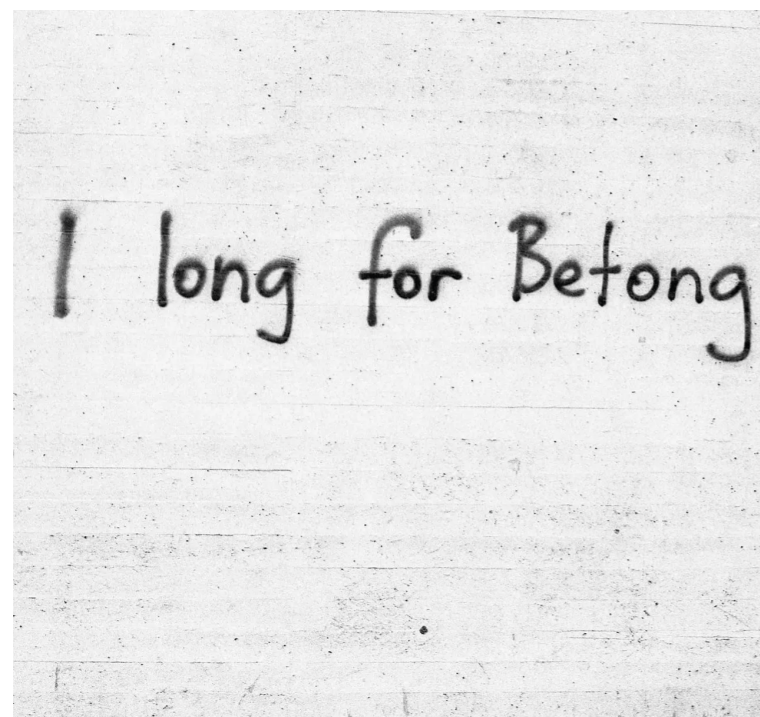 I long for Betong